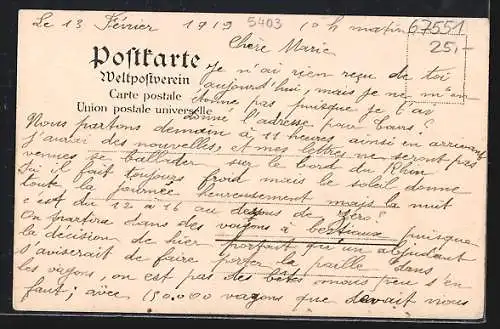 Le 13 Février 1919 5403 10 h matin 67551
25.-
Chère Marie
Postkarte
Weltpostverein
Carte postale
Union postale universelle
Je n'ai rien reçu de toi
aujourd'hui, mais je ne m'en
étonne pas puisque je t'ai
donné l'adresse pour Tours ?
Nous partons demain à 11 heures ainsi en arrivant
j'aurai des nouvelles et mes lettres ne seront pas
venues se ballader sur le bord du Rhin
Ici il fait toujours froid mais le soleil donne
toute la journée heureusement mais la nuit
c'est du 12 à 16 au dessous de zéro !
On partira dans des wagons à bestiaux puisque
la décision de hier portait qu'un adjudant
s'aviserait de faire porter la paille dans
les wagons, on est pas des bêtes mais peu s'en
faut ; avec 150.000 wagons que devait nous